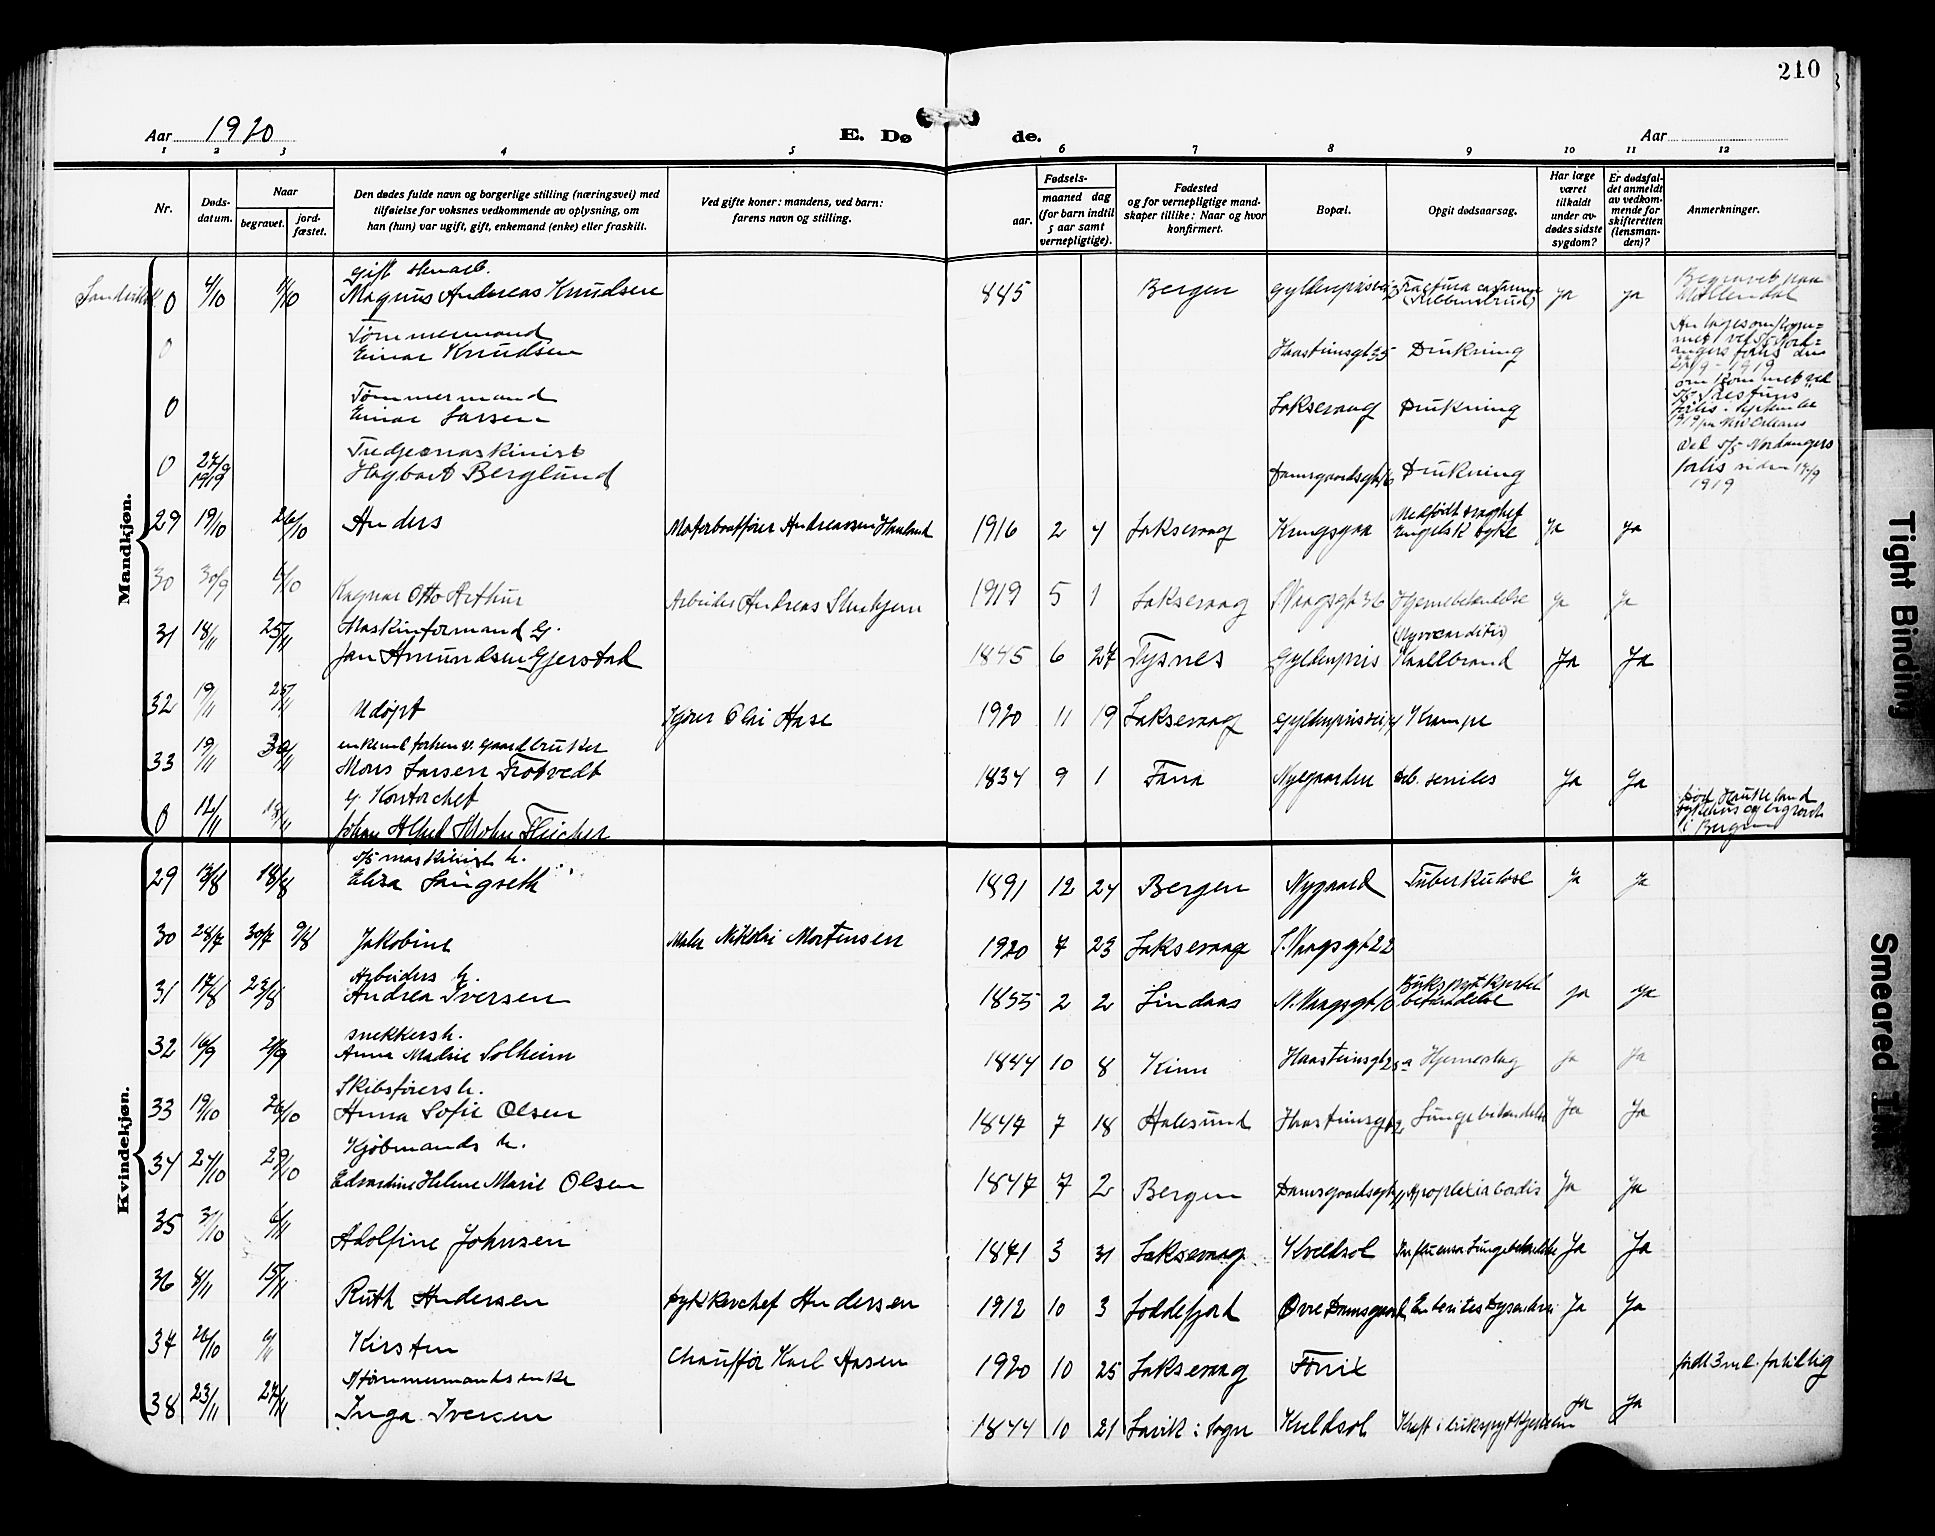 210
Aar 1920
E. Døde.
Aar
1 2 3 4 5 6 7 8 9 10 11 12
Nr.
Dødsdatum.
Naar
begravet.
jordfæstet.
Den dødes fulde navn og borgerlige stilling (næringsvei) med
tilføielse for voksnes vedkommende av oplysning, om
han (hun) var ugift, gift, enkemand (enke) eller fraskilt.
Ved gifte koner: mandens, ved barn:
farens navn og stilling.
Fødsels-
aar.
maaned dag
(for barn indtil
5 aar samt
vernepligtige).
Fødested
og for vernepligtige mandskaper tillike: Naar og hvor
konfirmert.
Bopæl.
Opgit dødsaarsag.
Har læge
været
tilkaldt
under avdødes sidste
sygdom?
Er dødsfaldet anmeldt
av vedkommende for
skifteretten
(lensmanden)?
Anmerkninger.
Mandkjøn.
0 4/10 11/10 gift
Magnus Andreas Knudsen 845 Bergen Ja Ja Begravet paa Møllendal
0 Tømmermand
Einar Knudsen Haasteinsgt 35 Drukning
0 Tømmermand
Einar Larsen Laksevaag Drukning
0 27/9 1919 Tredjemaskinist
Hagbart Berglund Damsgaardsgt 16 Drukning Ved S/S Nordangers forlis siden 14/9 1919
29 19/10 26/10 Anders Motorbaatfører Andreassen Haaland 1916 2 4 Laksevaag Kringsjaa Medfødt svaghet Engelsk syke Ja Ja
30 30/9 6/10 Ragnar Otto Arthur Arbeider Andreas 1919 5 1 Laksevaag S. Vaagsgt 36 Hjernebetændelse Ja Ja
31 18/11 25/11 Maskinformand G.
Jan Amundsen Gjerstad 1845 6 27 Tysnes Gyldenpris (Myocarditis) Kaallbrand Ja Ja
32 19/11 25/11 Udøpt Kjører Olai Aase 1920 11 19 Laksevaag Krampe
33 19/11 30/11 enkemd forhenv. gaardbruker
Mons Larsen Trotvedt 1834 9 1 Fana Nygaarden Deb. seniles Ja Ja
0 12/11 18/11 g. Kontorchef
Johan Alfred Mohn Fleicher død Haukeland sykehus og begravet i Bergen
Kvindekjøn.
29 13/8 18/8 S/S maskinist h.
Elisa Langseth 1891 12 24 Bergen Nygaard Tuberkulose Ja Ja
30 28/7 30/7 9/8 Jakobine Maler Nikolai Mortensen 1920 7 23 Laksevaag S. Vaagsgt 22
31 17/8 23/8 Arbeiders h.
Andrea Iversen 1855 2 2 Lindaas N. Vaagsgt 10 Bukspytkjertel betændelse Ja Ja
32 16/9 21/9 snekkers h.
Anna Malene Solheim 1844 10 8 Kinn Haasteinsgt 25a Hjerneslag Ja Ja
33 19/10 26/10 Skibsførers h.
Anna Sofie Olsen 1847 7 18 Aalesund Haasteinsgt Lungebetændelse Ja Ja
34 24/10 29/10 Kjøbmands h.
Edvardine Helene Marie Olsen 1847 7 2 Bergen Damsgaardsgt Apoplexia cordis Ja Ja
35 31/10 6/11 Adolfine Johnsen 1871 3 31 Laksevaag Kveldsol Influensa Lungebetændelse Ja Ja
36 8/11 15/11 Ruth Andersen Trykkerichef Andersen 1912 10 3 Loddefjord Øvre Damsgaard Enterites Dysenteri Ja Ja
37 26/10 1/11 Kirsten Chauffør Karl Aasen 1920 10 25 Laksevaag Fønix født 3 md. for tidlig
38 23/11 27/11 Tømmermands enke
Inga Iversen 1844 10 21 Lavik i Sogn Kveldsol Kræft i bukspytkjertelen Ja Ja
Tight Binding
Smeared Ink